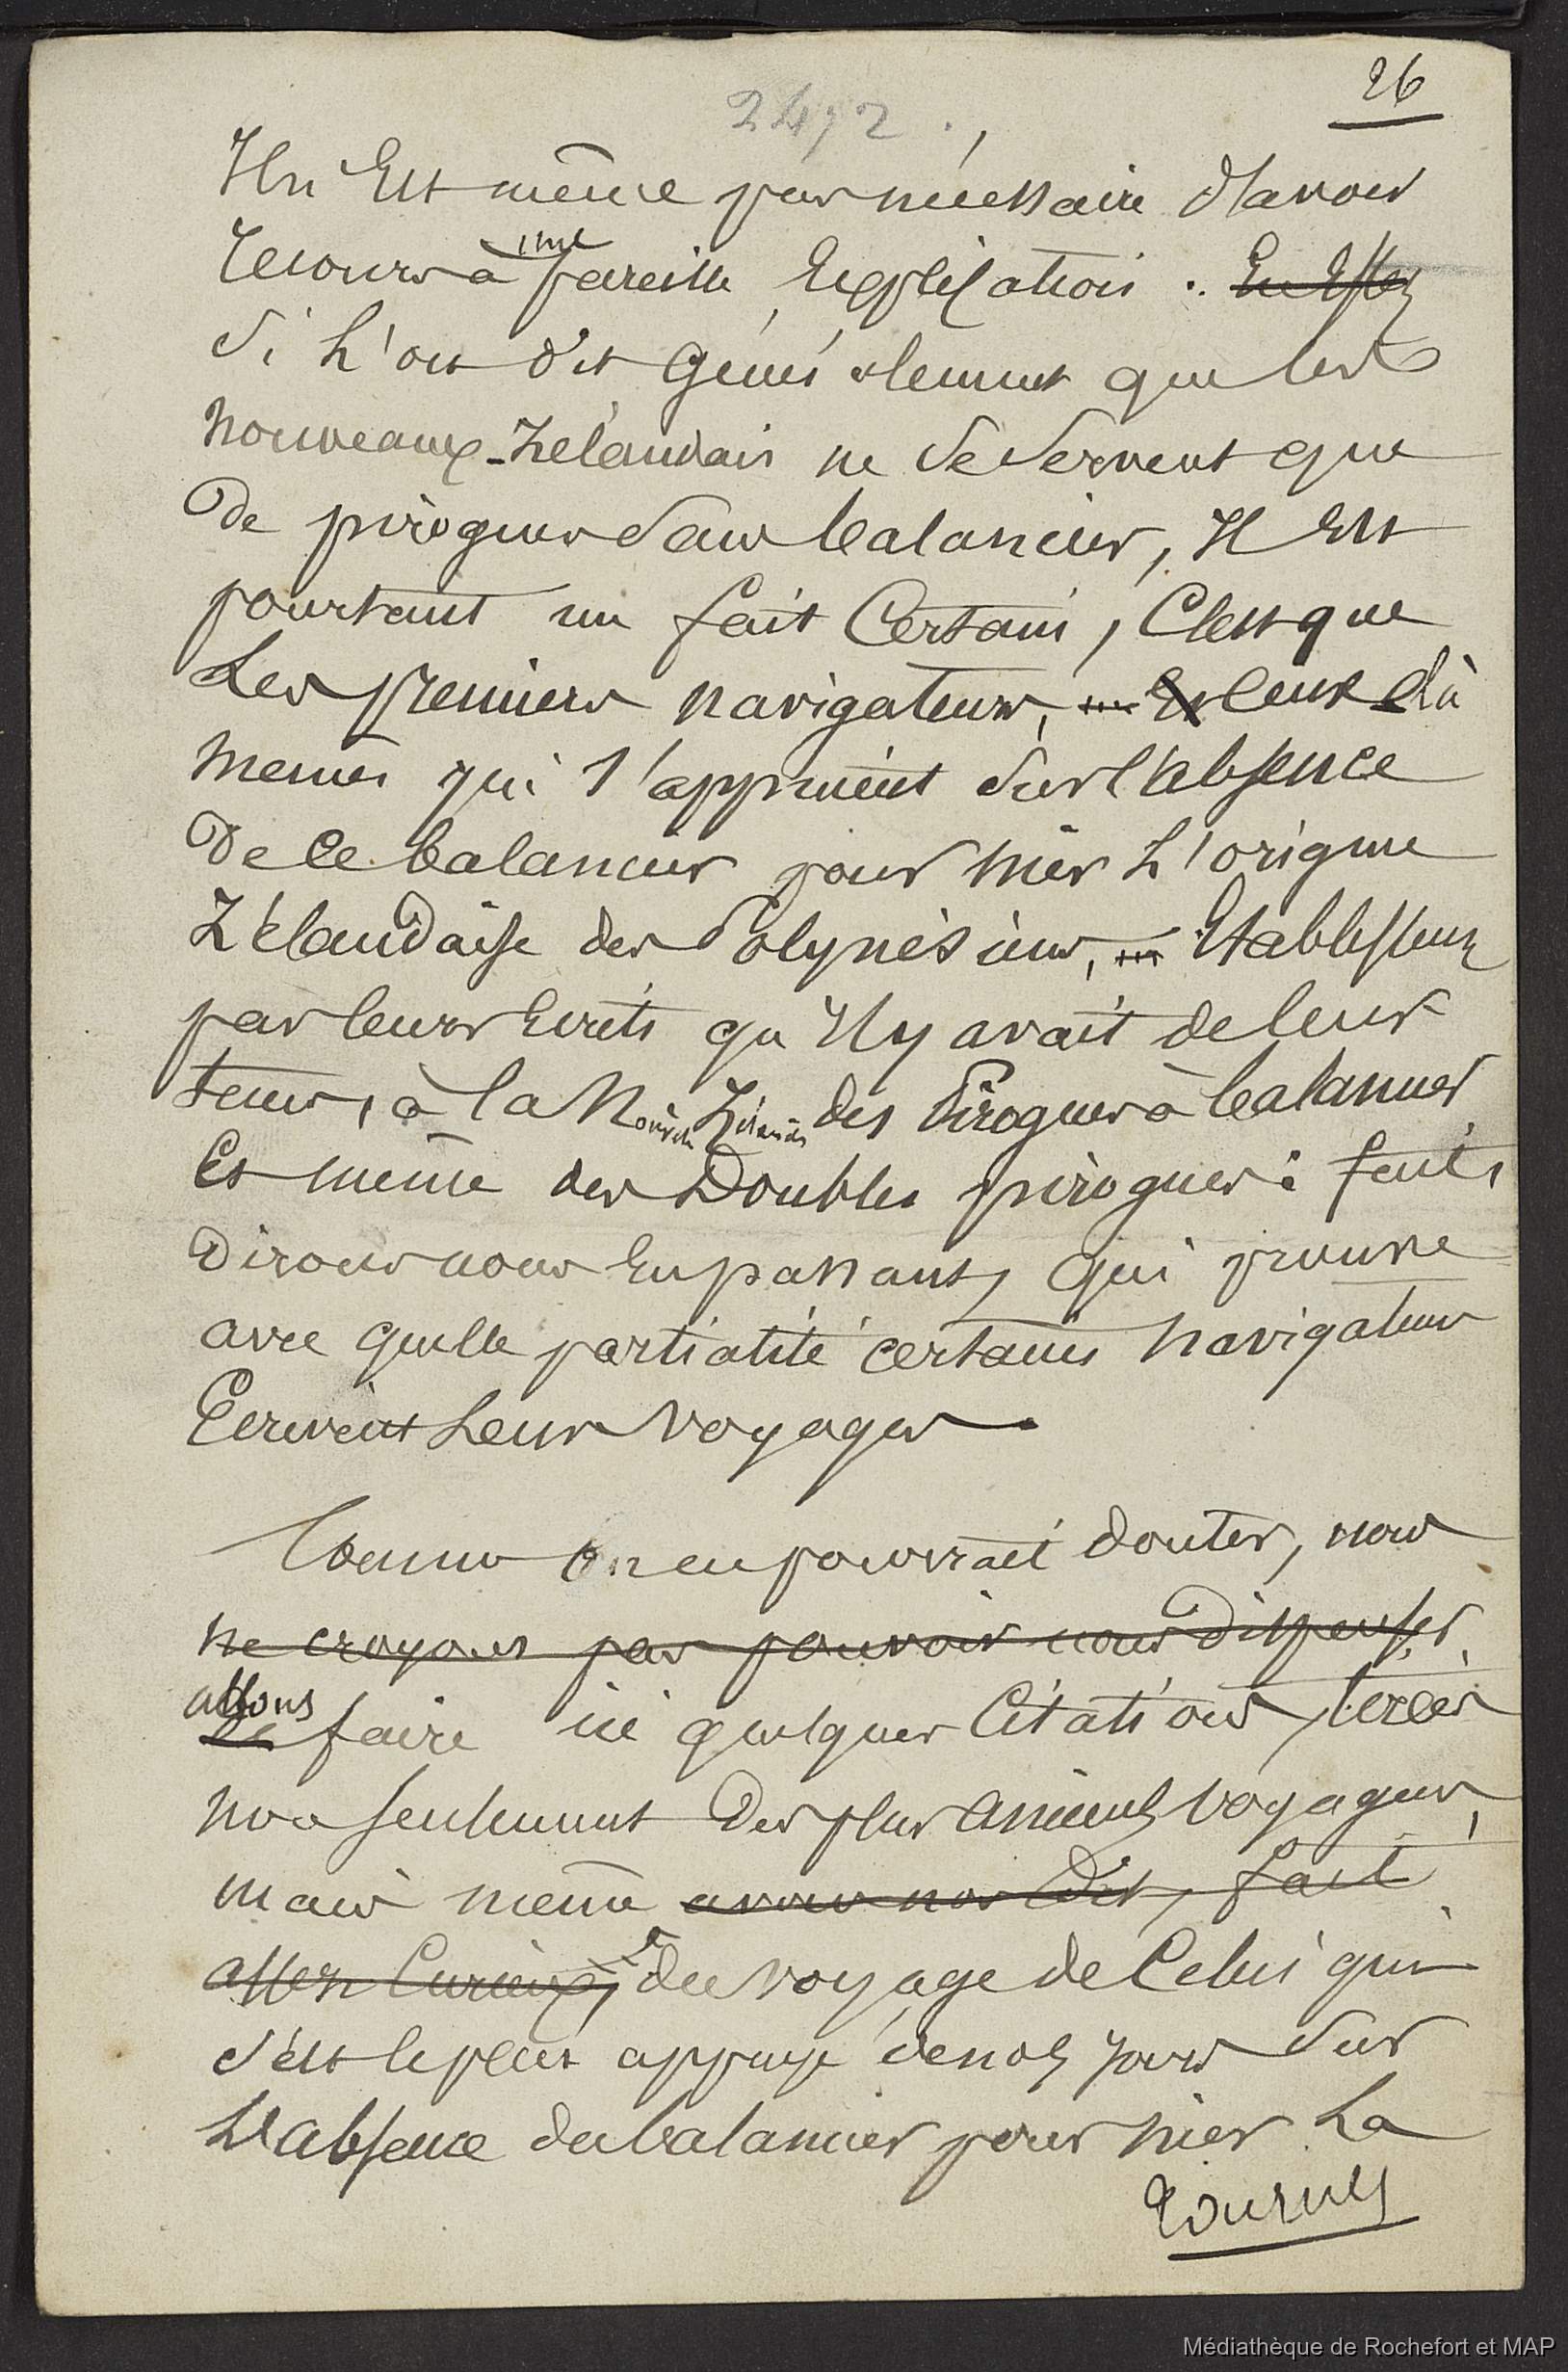 26
2472.
Il n'est même pas nécessaire d'avoir
recours à une pareille explication. En effet
si l'on dit généralement que les
nouveaux-Zélandais ne se servent que
de pirogues sans balancier, il est
pourtant un fait certain, c'est que
les premiers navigateurs, et ceux là
memes qui s'appuient sur l'absence
de ce balancier pour nier l'origine
Zélandaise des Polynésiens, établissent
par leurs écrits qu'il y avait de leur
tems, à la Nouvelle Zélande des pirogues à balancier
et même des doubles pirogues: faits
dirons nous en passant, qui prouve
avec quelle partialité certains navigateurs
écrivent leurs voyages.
Comme on en pourrait douter, nous
ne croyons pas pouvoir nous dispenser
allons de faire ici quelques citations, tirées
non seulement des plus anciens voyageurs,
mais même avons nos dit, fait
assez curieux, du voyage de celui qui
s'est le plus appuyé de nos jours sur
l'absence du balancier pour nier la
tournez
Médiathèque de Rochefort et MAP